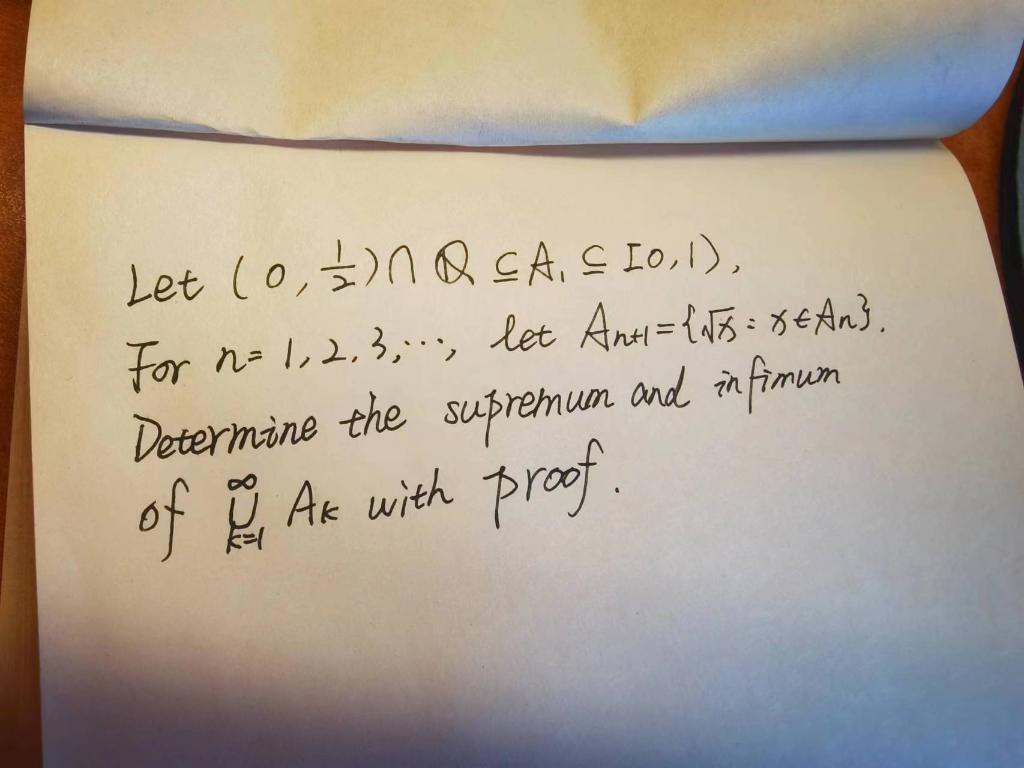 Let (0, 1/2) ∩ ℚ ⊆ A₁ ⊆ [0,1),
For n= 1, 2, 3, ⋯, let Aₙ₊₁ = {√x : x ∈ Aₙ}.
Determine the supremum and infimum
of ⋃_{k=1}^{∞} Aₖ with proof.